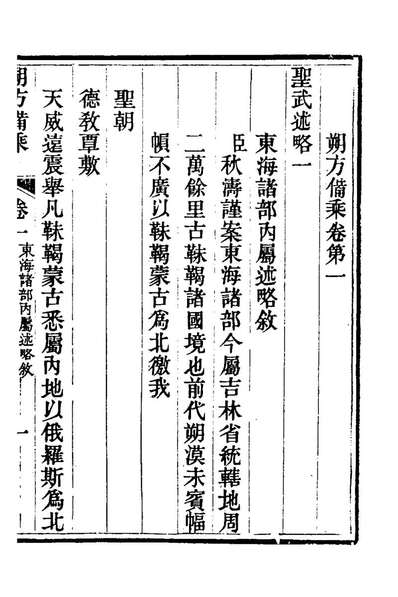 朔方備乘卷第一
聖武述略一
東海諸部內屬述略敘
臣秋濤謹案東海諸部今屬吉林省統轄地周
二萬餘里古靺鞨諸國境也前代朔漠未賓幅
幀不廣以靺鞨蒙古為北徼我
聖朝
德敎覃敷
天威遠震舉凡靺鞨蒙古悉屬內地以俄羅斯為北
朔方備乘 卷一 東海諸部內屬述略敘 一